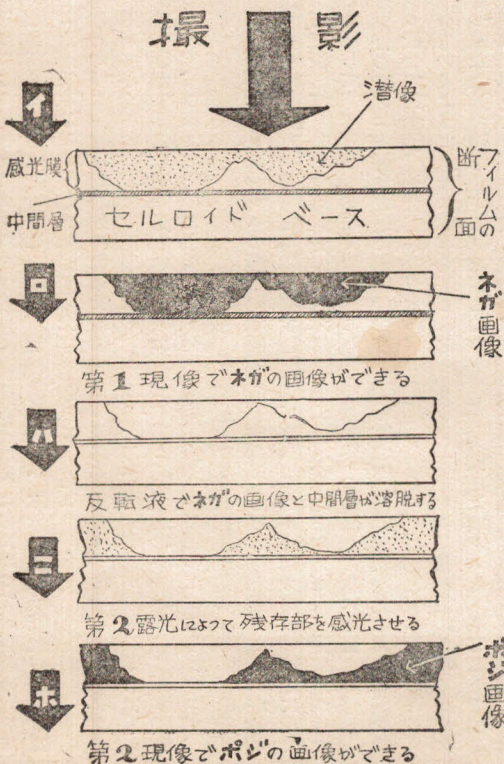 撮影
イ
潜像
感光膜
中間層
セルロイド ベース
フィルムの
断面
ロ
ネガ画像
第1現像でネガの画像ができる
ハ
反転液でネガの画像と中間層が溶脱する
ニ
第2露光によつて残存部を感光させる
ホ
ポジ画像
第2現像でポジの画像ができる